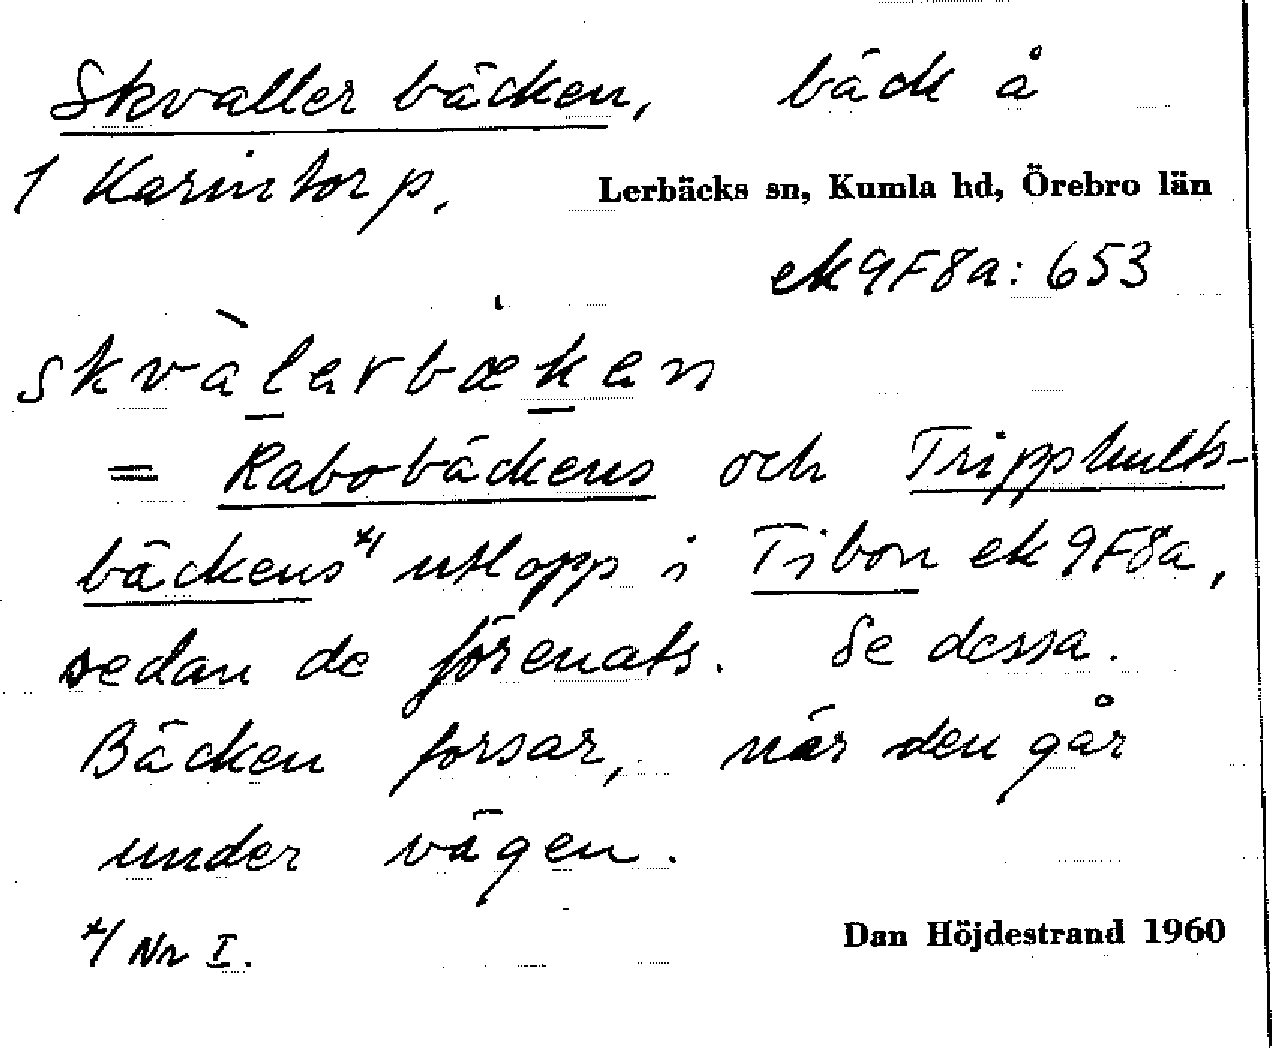 Skvallerbäcken, bäck å
1 Karintorp. Lerbäcks sn, Kumla hd, Örebro län
ek 9F8a: 653
skvàlerbæken
= Rabobäckens och Tripphults-
bäckens*) utlopp i Tibon ek 9F8a,
sedan de förenats. Se dessa.
Bäcken forsar, när den går
under vägen.
*) Nr I. Dan Höjdestrand 1960